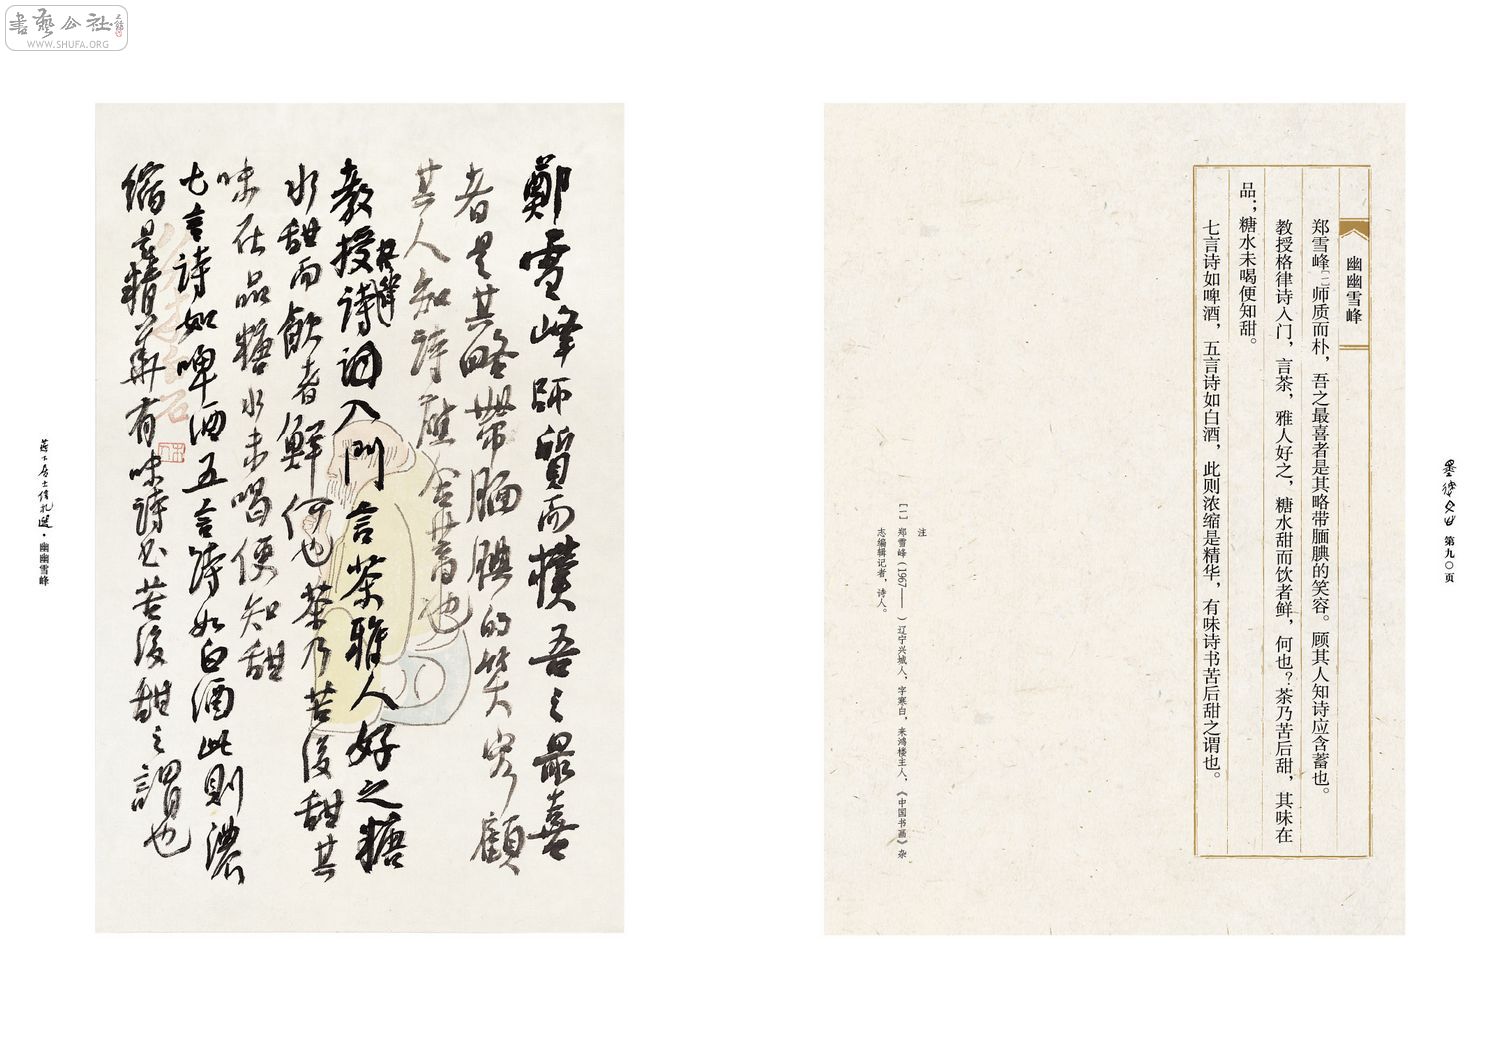 書藝公社
WWW.SHUFA.ORG
幽幽雪峰
郑雪峰[一]师质而朴，吾之最喜者是其略带腼腆的笑容。顾其人知诗应含蓄也。
教授格律诗入门，言茶，雅人好之，糖水甜而饮者鲜，何也？茶乃苦后甜，其味在
品；糖水未喝便知甜。
七言诗如啤酒，五言诗如白酒，此则浓缩是精华，有味诗书苦后甜之谓也。
注
[一] 郑雪峰（1967——　）辽宁兴城人，字寒白，来鸿楼主人，《中国书画》杂
志编辑记者，诗人。
第九〇页
鄭雪峰師質而樸吾之最喜
者是其略帶腼腆的笑容顧
其人知詩應含蓄也
教授格律詩词入門言茶雅人好之糖
水甜而飲者鮮何也茶乃苦後甜其
味在品糖水未喝便知甜
七言詩如啤酒五言詩如白酒此則濃
缩是精華有味詩书苦後甜之謂也
幽幽雪峰